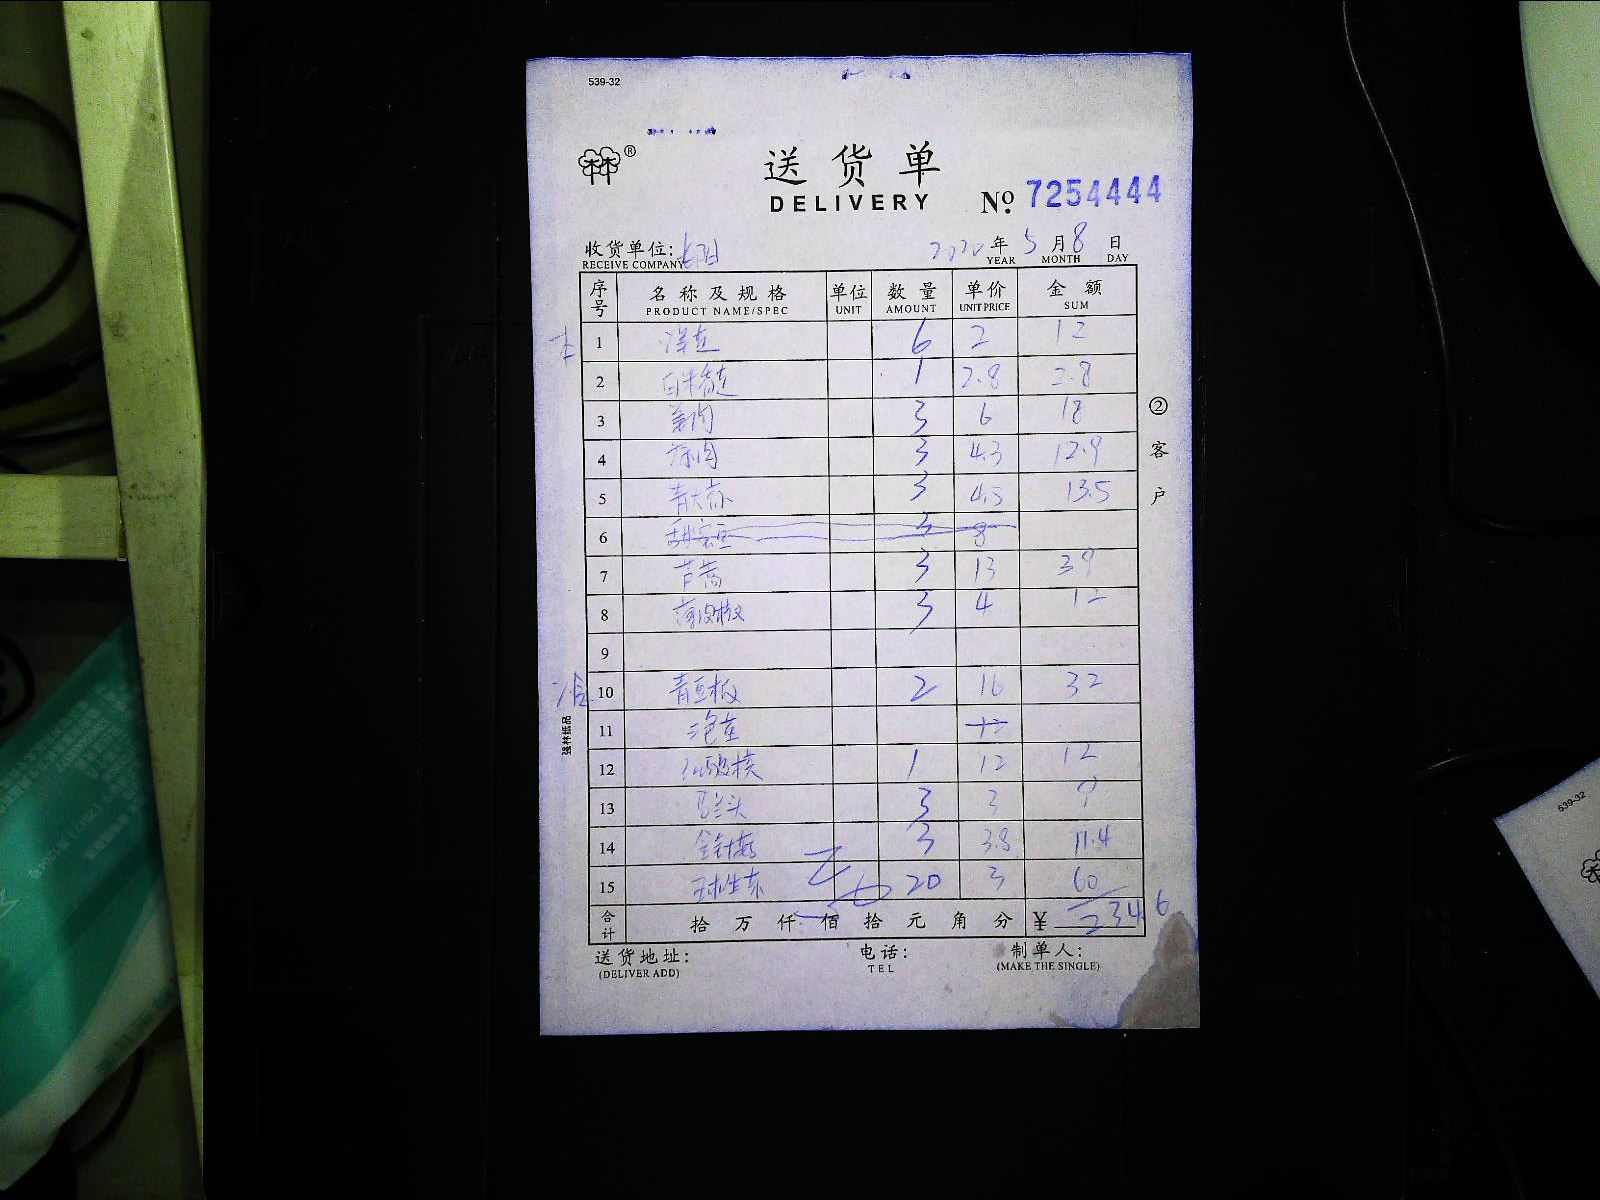 539-32
®
送货单
DELIVERY
No. 7254444
收货单位:
RECEIVE COMPANY
2020年 5月 8日
YEAR MONTH DAY
序号 名称及规格 单位 数量 单价 金额
PRODUCT NAME/SPEC UNIT AMOUNT UNIT PRICE SUM
1 6 2 12
2 1 2.8 2.8
3 姜肉 3 6 18
4 蒜肉 3 4.3 12.9
5 青大蒜 3 4.5 13.5
6 3 8
7 芦蒿 3 13 39
8 薄皮椒 3 4 12
9
10 2 16 32
11 12
12 1 12 12
13 马兰头 3 3 9
14 金针菇 3 3.8 11.4
15 球生菜 20 3 60
合计 拾 万 仟 佰 拾 元 角 分 ¥ 234.6
送货地址:
(DELIVER ADD)
电话:
TEL
制单人:
(MAKE THE SINGLE)
②客户
强林纸品
539-32